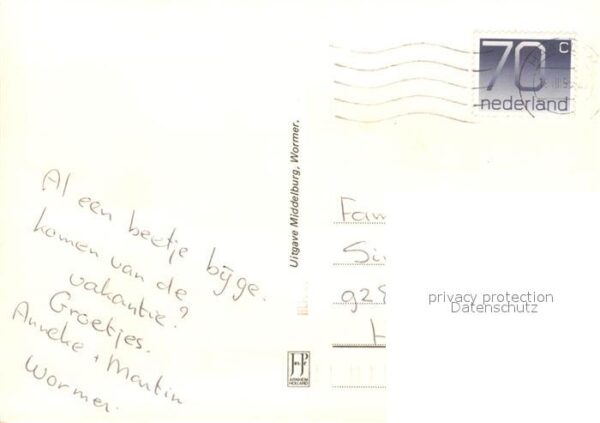 70 c
nederland
Uitgave Middelburg, Wormer.
Al een beetje bijge.
komen van de
vakantie?
Groetjes.
Anneke + Martin
Wormer.
Fam
Si
929
H
privacy protection
Datenschutz